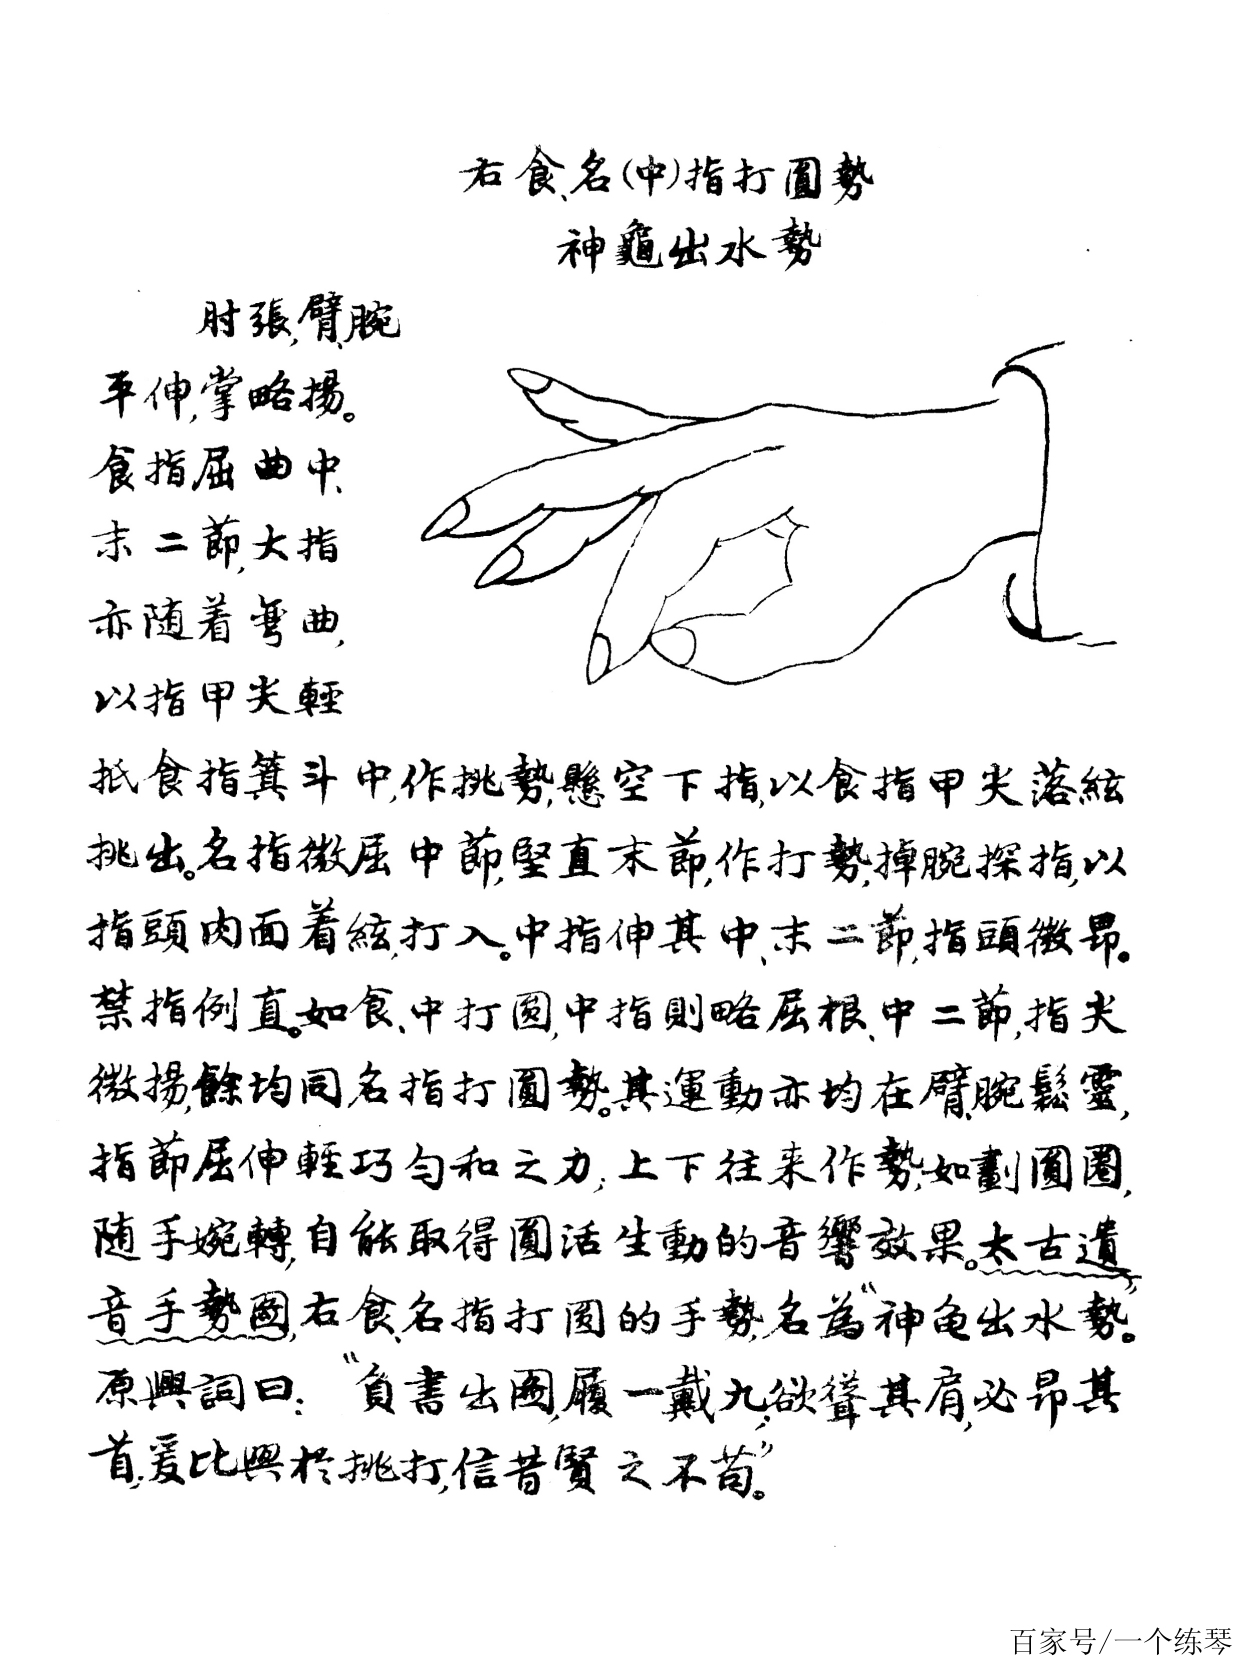 右食、名(中)指打圓勢
神龜出水勢
肘張,臂、腕
平伸,掌略揚。
食指屈曲中、
末二節,大指
亦随着彎曲,
以指甲尖輕
抵食指箕斗中,作挑勢,懸空下指,以食指甲尖落絃
挑出。名指微屈中節,堅直末節,作打勢,掉腕探指,以
指頭内面着絃,打入。中指伸其中、末二節,指頭微昂。
禁指例直。如食、中打圆,中指則略屈根、中二節,指尖
微揚,餘均同名指打圓勢。其運動亦均在臂、腕鬆靈,
指節屈伸輕巧勻和之力;上下往来作勢,如劃圓圈,
随手婉轉,自能取得圓活生動的音響效果。太古遺
音手勢圖,右食、名指打圆的手勢,名為“神龟出水勢”。
原興詞曰:“負書出圖,履一戴九;欲聳其肩,必昂其
首;爰比興於挑打,信昔賢之不苟。”
百家号/一个练琴